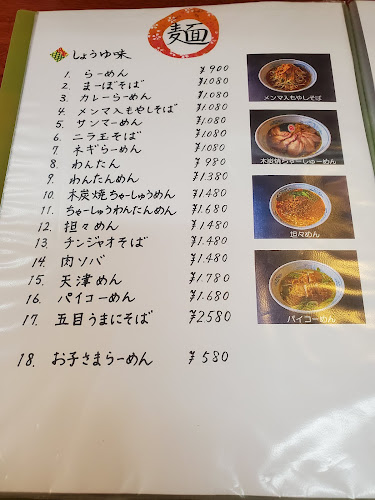 麺
しょうゆ味
1. らーめん ¥900
2. まーぼそば ¥1.080
3. カレーらーめん ¥1.080
4. メンマ入もやしそば ¥1.080
5. サンマーめん ¥1.080
6. ニラ玉そば ¥1080
7. ネギらーめん ¥1.080
8. わんたん ¥980
9. わんたんめん ¥1.380
10. 木炭焼ちゃーしゅうめん ¥1.480
11. ちゃーしゅうわんたんめん ¥1.680
12. 担々めん ¥1.480
13. チンジャオそば ¥1.480
14. 肉ソバ ¥1.480
15. 天津めん ¥1.780
16. パイコーめん ¥1.680
17. 五目うまにそば ¥2.580
18. お子さまらーめん ¥580
メンマ入もやしそば
木炭焼ちゅーしゅーめん
坦々めん
パイコーめん